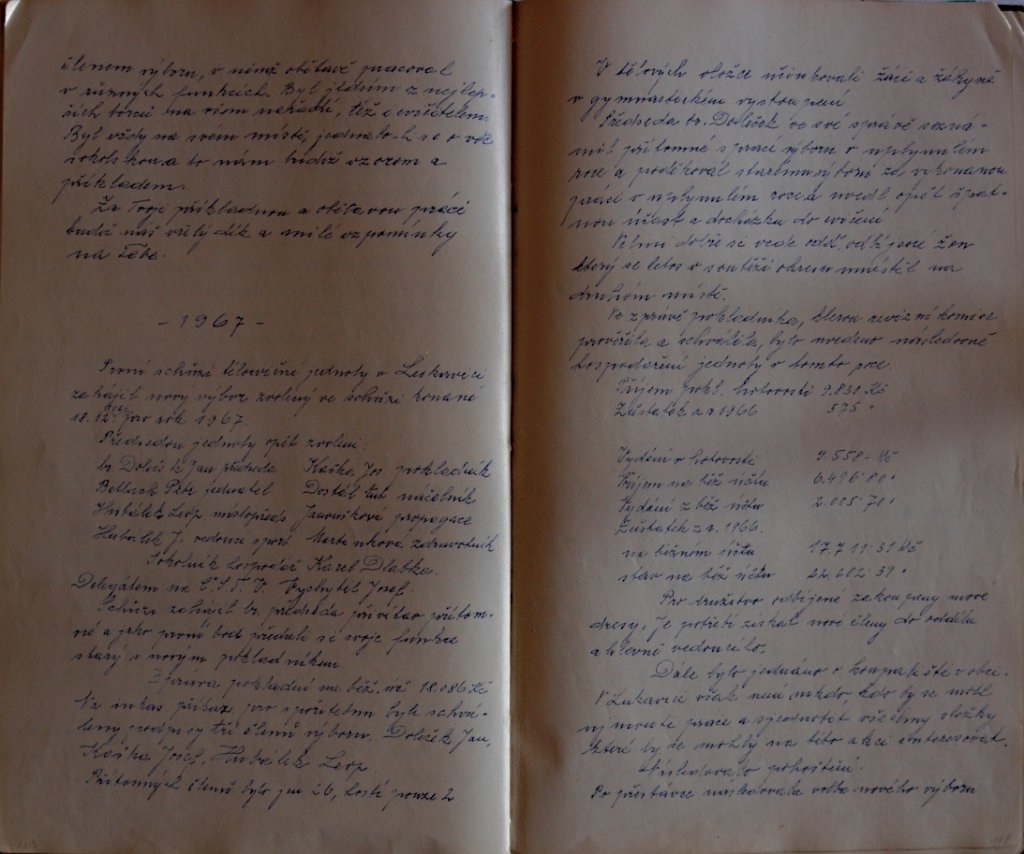 členem výboru, v němž obětavě pracoval
v různých funkcích. Byl jedním z nejlep-
ších borců na všem nářadí, též i cvičitelem.
Byl vždy na svém místě, jednalo-li se o věc
sokolskou a to nám budiž vzorem a
příkladem.
Za Tvoje příkladnou a obětavou práci
budiž náš vřelý dík a milé vzpomínky
na Tebe.
- 1967 -
První schůzi tělovýchné jednoty v Lukavici
zahájil nový výbor zvolený ve schůzi konané
18. 12. pro rok 1967.
Předsedou jednoty opět zvolen:
br. Doleček Jan předseda Kaška Jos. pokladník
Betlach Petr jednatel Dostál náčelník
Hubálek Leop. místopředs. Janoušková propagace
Hubálek J. vedouce sport. Martinkova zdravotník
Sokolník hospodář Karel Dlabka.
Delegátem na Č.S.T.V. Vychytil Josef.
Schůzi zahájil br. předseda přivítav přítom-
né a jako první bod předali si svoje funkce
starý s novým pokladníkem
Zpráva pokladní na běž. úč. 18.086 Kč
Na příkaz pro spořitelnu byly schvá-
leny podpisy tří členů výboru. Doleček Jan,
Kaška Josef, Hubálek Leop.
Přítomných členů bylo jen 26, hosté pouze 2
V tělových vložce účinkovali žáci a žákyně
v gymnastickém vystoupení.
Předseda br. Doleček ve své zprávě sezná-
mil přítomné s prací výboru v uplynulém
roce a poděkoval starému výboru za vykonanou
práci v uplynulém roce a uvedl opět špat-
nou účast a docházku do cvičení
Velmi dobře si vede odd. odbíjené žen
který se letos v soutěži okresu umístil na
druhém místě.
Ve zprávě pokladníka, kterou revizní komise
prověřila a schválila, bylo uvedeno následovné
hospodaření jednoty v tomto roce.
Příjem pokl. hotovosti 9.830 Kč
Zůstatek z r 1966 575 "
Vydání v hotovosti 9.558 - Kč
Příjem na běž účtu 6.496 80 "
Vydání z běž účtu 2.005 70 "
Zůstatek z r. 1966
na běžném účtu 17.711.31 Kč
stav na běž účtu 22.202 39 "
Pro družstvo odbíjené zakoupeny nové
dresy. Je potřeba získat nové členy do oddílu
a hlavně vedoucího.
Dále bylo jednáno o koupališti v obci.
V Lukavici však není nikdo, kdo by se mohl
ujmout práce a sjednotit všechny složky
které by se mohly na této akci interesovat.
Následovalo pohoštění.
Po přestávce následovala volba nového výboru